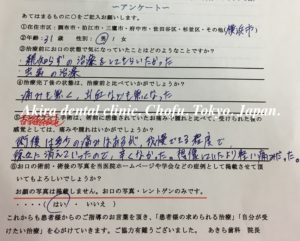 ～アンケート～
あてはまるものに○をご記入お願します。
①在住市区：調布市・狛江市・三鷹市・府中市・世田谷区・杉並区・その他(横浜市)
②年齢：31歳 性別（男）/女
③治療前にお口の状態で気になっていたことはどのようなことですか？
・親知らずの治療をしてもらいたかった
・虫歯の治療
④治療完了後の状態は、治療前と比べていかがでしょうか？
痛みを無く、
Akira dental clinic, Chofu, Tokyo, Japan.
感覚としては、痛みや腫れはいかがでしょうか？
術後は多少の痛みはあるが、我慢できる程度で
徐々に消えていったので、辛くなかった。想像していたより軽い痛みだった。
頂いてもよろしいでしょうか？
お顔の写真は掲載しません。お口の写真・レントゲンのみです。
・・・・（はい ・ いいえ）
これからも患者様からのご指導のお言葉を頂き、「患者様の求められる治療」「自分が受
けたい治療」を心がけていきます。ご協力有難うございました。 あきら歯科 院長